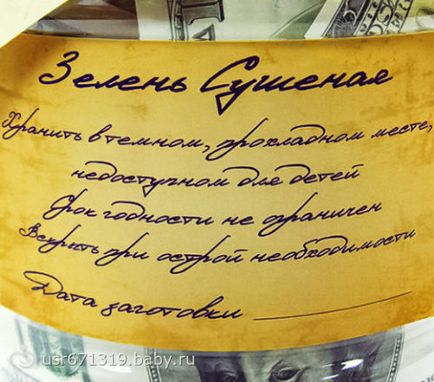 Зелень Сушеная
Хранить в темном, прохладном месте,
недоступном для детей
Срок годности не ограничен
Вскрыть при острой необходимости
Дата заготовки
usr671319.baby.ru